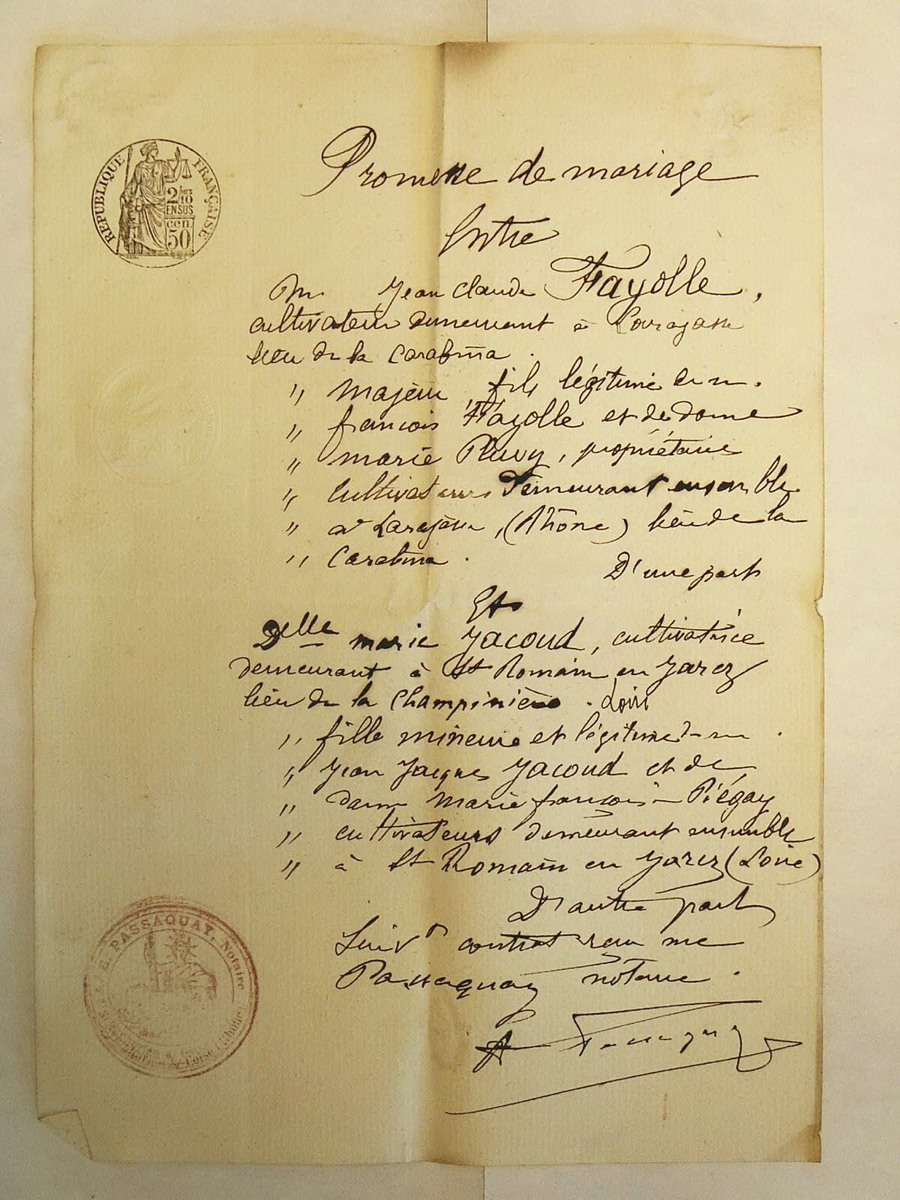 RÉPUBLIQUE FRANÇAISE
2/10
EN SUS
50 cen
Promesse de mariage
Entre
Mr Jean Claude Fayolle,
cultivateur demeurant à Larajasse
lieu de la
" majeur fils légitime de m.
" françois Fayolle et de dame
" marie Pluvy, propriétaires
" cultivateurs demeurant ensemble
" à Larajasse, (Rhône) lieu de la
"
D'une part
Et
Delle marie Jacoud, cultivatrice
demeurant à St Romain en Jarez
lieu de la Champinière. Loire
" fille mineure et légitime de m.
" Jean Jacques Jacoud et de
" dame Marie françoise Piégay
" cultivateurs demeurant ensemble
" à St Romain en Jarez (Loire)
D'autre part
Suivt contrat reçu me
Passaquay notaire.
A Passaquay
PASSAQUAY, Notaire